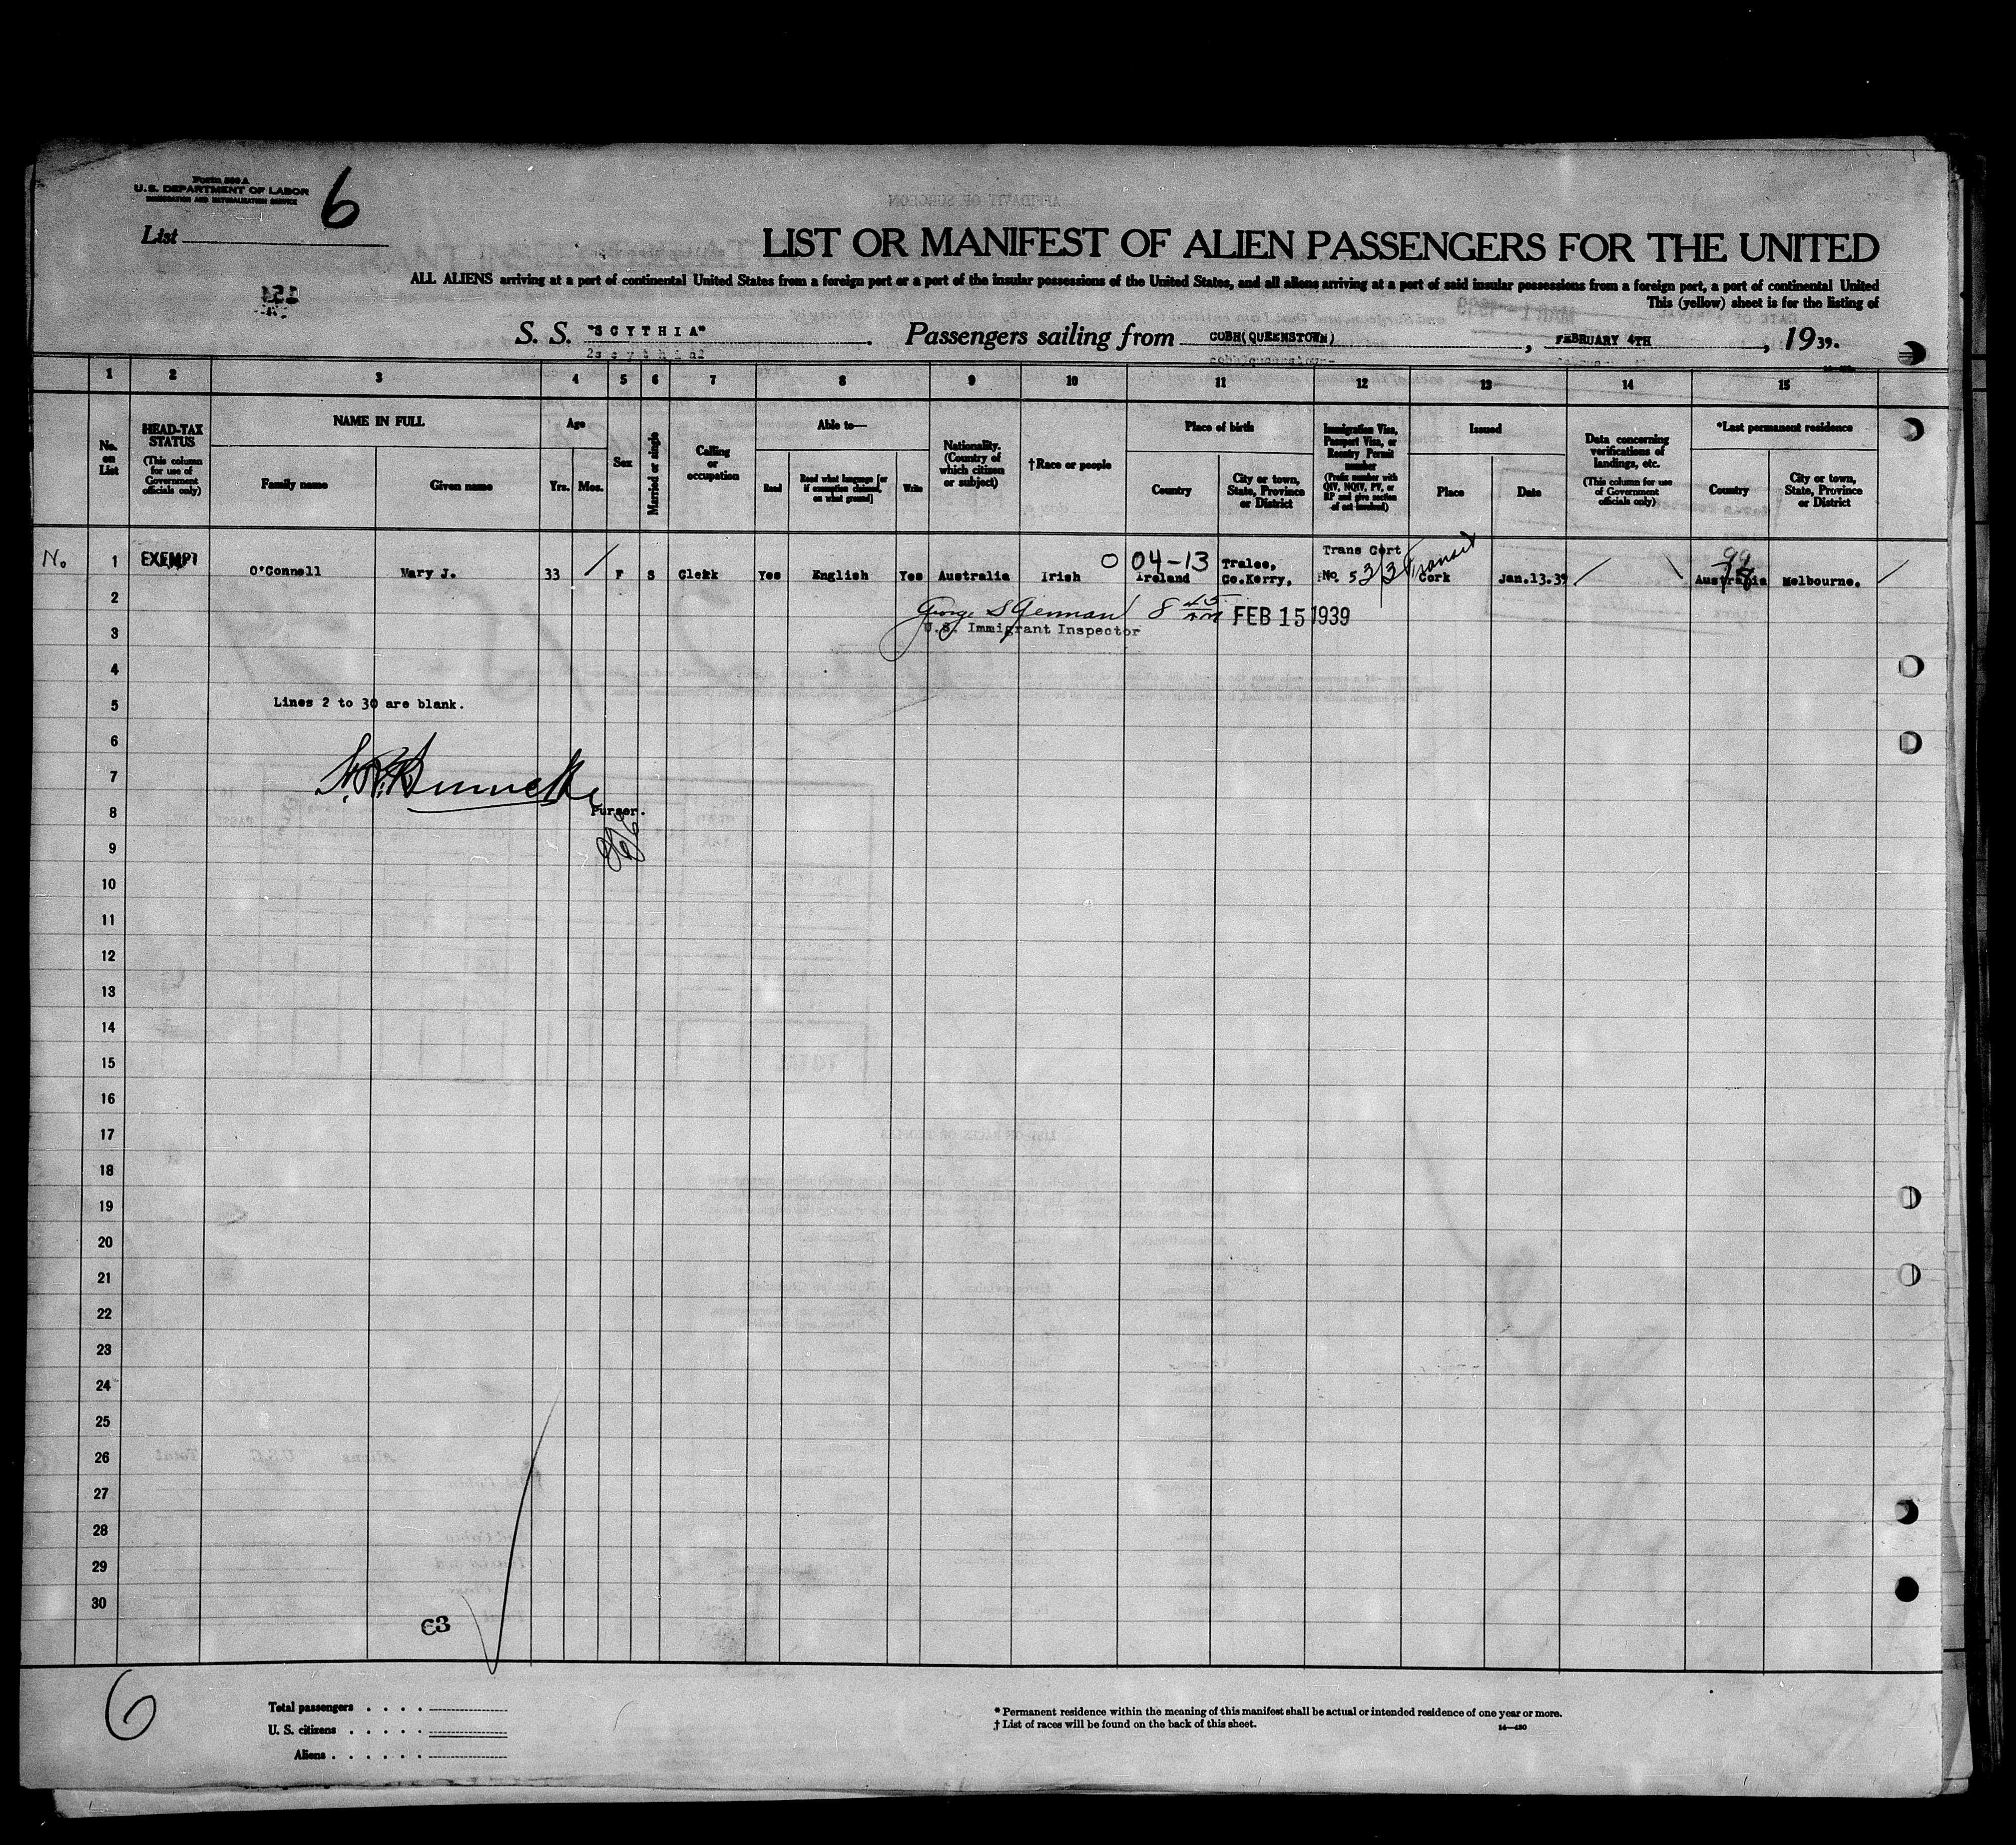 Form 500 A
U. S. DEPARTMENT OF LABOR
IMMIGRATION AND NATURALIZATION SERVICE
6
List
LIST OR MANIFEST OF ALIEN PASSENGERS FOR THE UNITED
ALL ALIENS arriving at a port of continental United States from a foreign port or a port of the insular possessions of the United States, and all aliens arriving at a port of said insular possessions from a foreign port, a port of continental United
This (yellow) sheet is for the listing of
S. S. "SCYTHIA" Passengers sailing from COBH(QUEENSTOWN), FEBRUARY 4TH, 1939.
1 2 3 4 5 6 7 8 9 10 11 12 13 14 15
No. on List
HEAD-TAX STATUS
(This column for use of Government officials only)
NAME IN FULL
Family name Given name
Age
Yrs. Mos.
Sex
Married or single
Calling or occupation
Able to—
Read Read what language [or if exemption claimed, on what ground] Write
Nationality. (Country of which citizen or subject)
†Race or people
Place of birth
Country City or town, State, Province or District
Immigration Visa, Passport Visa, or Reentry Permit number
(Prefix number with QIV, NQIV, PV, or RP and give section of act involved)
Issued
Place Date
Data concerning verifications of landings, etc.
(This column for use of Government officials only)
*Last permanent residence
Country City or town, State, Province or District
No. 1 EXEMPT O'Connell Mary J. 33 F S Clerk Yes English Yes Australia Irish 0 04-13 Ireland Tralee, Co.Kerry. Trans Cert No. 533 Transit Cork Jan.13.39 99 Australia Melbourne.
2 George S German 8 45 AM FEB 15 1939
3 U.S. Immigrant Inspector
4
5 Lines 2 to 30 are blank.
6
7
8 Purser.
9
10
11
12
13
14
15
16
17
18
19
20
21
22
23
24
25
26
27
28
29
30
63
6
Total passengers
U. S. citizens
Aliens
* Permanent residence within the meaning of this manifest shall be actual or intended residence of one year or more.
† List of races will be found on the back of this sheet.
14—430